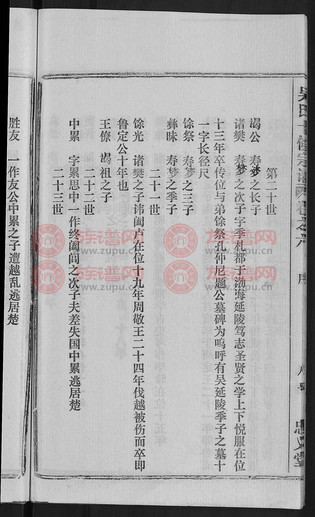 第二十世
谒公 寿梦之长子
诸樊 寿梦之次子字季札都于渤海延陵笃志圣贤之学上下悦服在位
十三年卒传位与弟馀祭孔仲尼题公墓碑为呜呼有吴延陵季子之墓十
一字长径尺
馀祭 寿梦之三子
彝昧 寿梦之季子
二十一世
馀光 诸樊之子讳阖卢在位十九年周敬王二十四年伐越被伤而卒即
鲁定公十年也
王僚 谒祖之子
二十二世
中累 字累思中一作终阖闾之次子夫差失国中累逃居楚
二十三世
胜友 一作友公中累之子遭越乱逃居楚
忠义堂
族谱网
www.zupu.cn